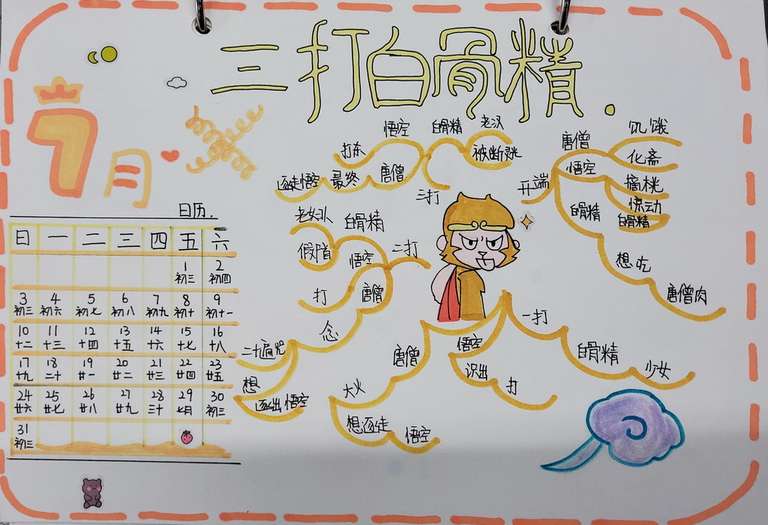 三打白骨精.
7月
日历.
日 一 二 三 四 五 六
1 2
初三 初四
3 4 5 6 7 8 9
初三 初六 初七 初八 初九 初十 十一
10 11 12 13 14 15 16
十二 十三 十四 十五 十六 十七 十八
17 18 19 20 21 22 23
十九 二十 廿一 廿二 廿三 廿四 廿五
24 25 26 27 28 29 30
廿六 廿七 廿八 廿九 三十 七月 初三
31
初三
开端
唐僧
悟空
饥饿
化斋
摘桃
白骨精
惊动
白骨精
想吃
唐僧肉
一打
白骨精
少女
悟空
识出
打
唐僧
大火
想逐走
悟空
二打
白骨精
老妇
假扮
悟空
打
唐僧
念
二十遍咒
想
逐出悟空
三打
白骨精
老汉
被断谜
悟空
打东
唐僧
最终
逐走悟空